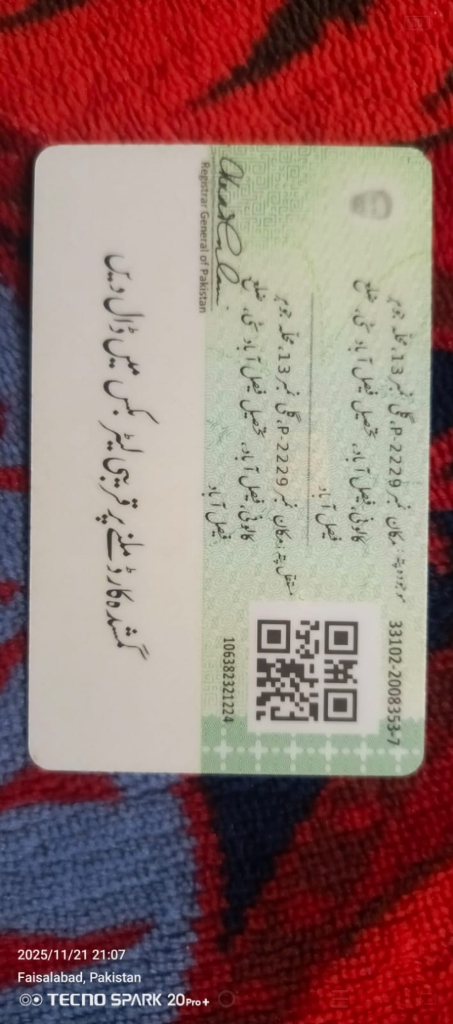 33102-2008353-7
موجودہ پتہ: مکان نمبر P-2229، گلی نمبر 13، محلہ جوہر
کالونی، فیصل آباد، تحصیل فیصل آباد سٹی، ضلع
فیصل آباد
مستقل پتہ: مکان نمبر P-2229، گلی نمبر 13، محلہ جوہر
کالونی، فیصل آباد، تحصیل فیصل آباد سٹی، ضلع
فیصل آباد
106382321224
Registrar General of Pakistan
گمشدہ کارڈ ملنے پر قریبی لیٹر بکس میں ڈال دیں
2025/11/21 21:07
Faisalabad, Pakistan
TECNO SPARK 20 Pro+